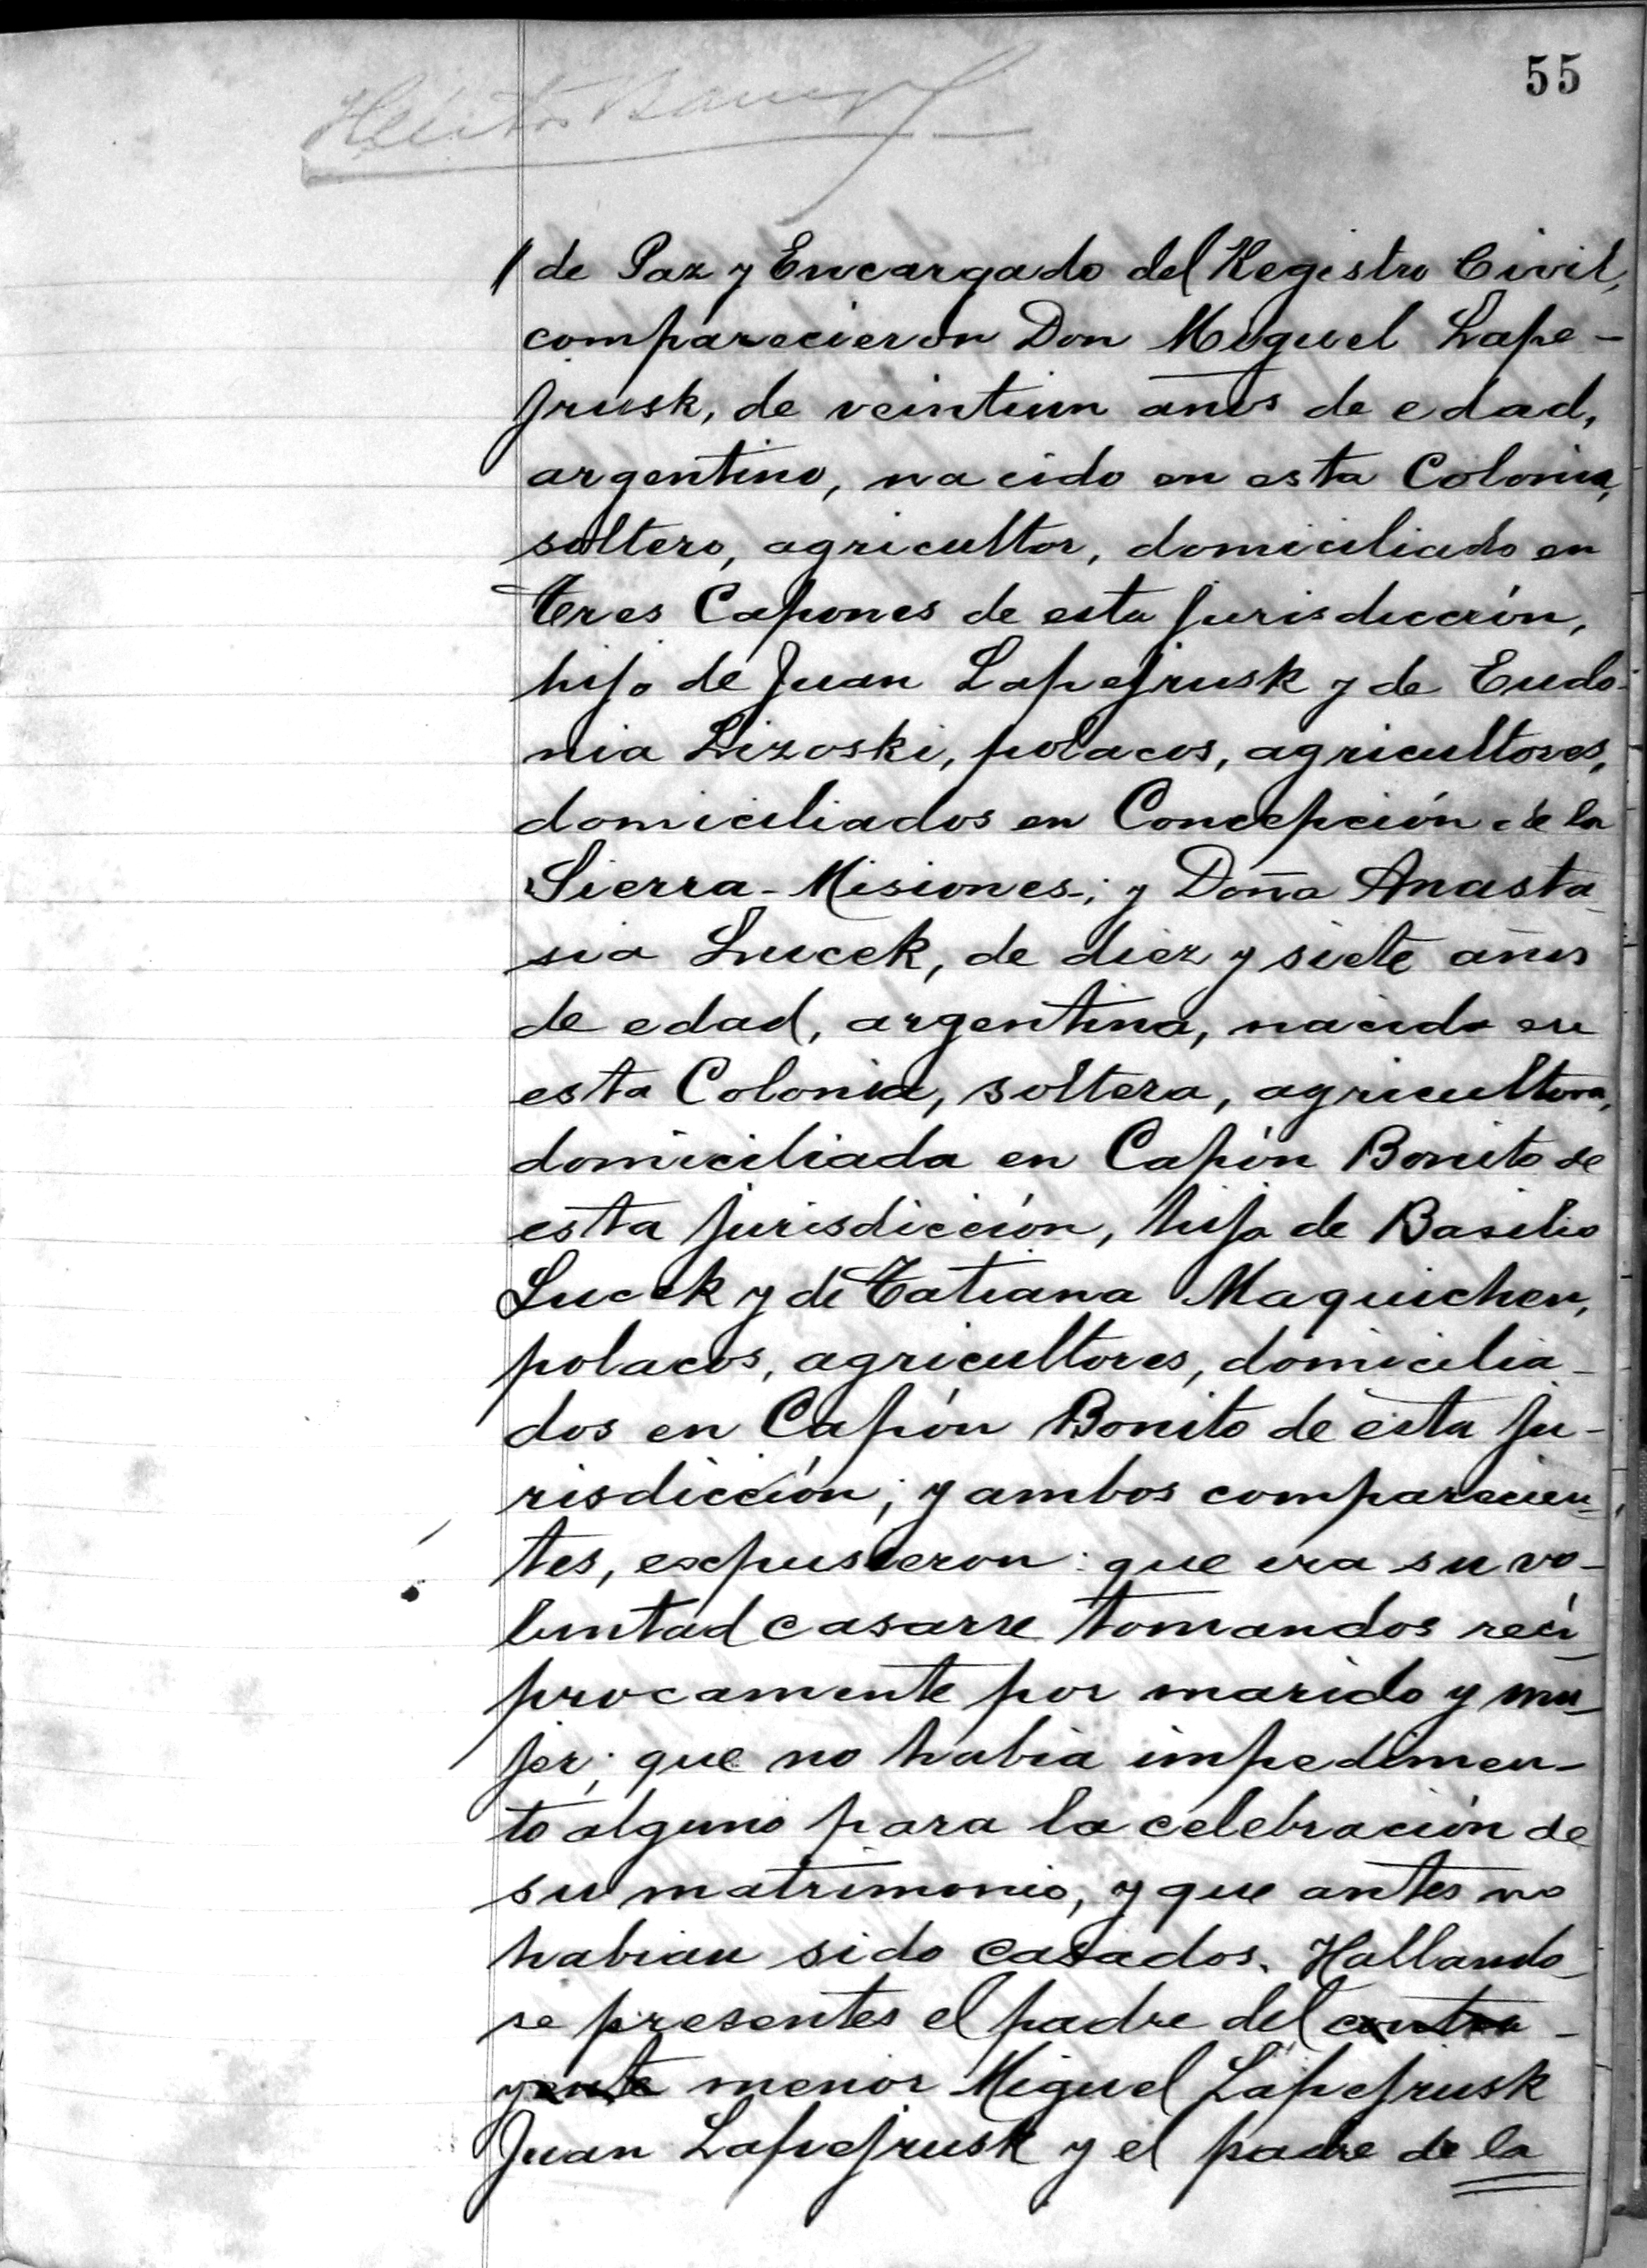 55
de Paz y Encargado del Registro Civil,
comparecieron Don Miguel Lape-
jrusk, de veintiun años de edad,
argentino, nacido en esta Colonia,
soltero, agricultor, domiciliado en
Tres Capones de esta jurisdicción,
hijo de Juan Lapejrusk y de Eudo-
nia Lizoski, polacos, agricultores,
domiciliados en Concepción de la
Sierra-Misiones-; y Doña Anasta-
sia Lucek, de diez y siete años
de edad, argentina, nacida en
esta Colonia, soltera, agricultora,
domiciliada en Capón Bonito de
esta jurisdicción, hija de Basilio
Lucek y de Tatiana Maquichen,
polacos, agricultores, domicilia-
dos en Capón Bonito de esta ju-
risdicción; y ambos comparecien-
tes, expusieron: que era su vo-
luntad casarse tomandos recí-
procamente por marido y mu-
jer; que no habia impedimen-
to alguno para la celebración de
su matrimonio, y que antes no
habian sido casados. Hallando-
se presentes el padre del contra-
yente menor Miguel Lapejrusk
Juan Lapejrusk y el padre de la